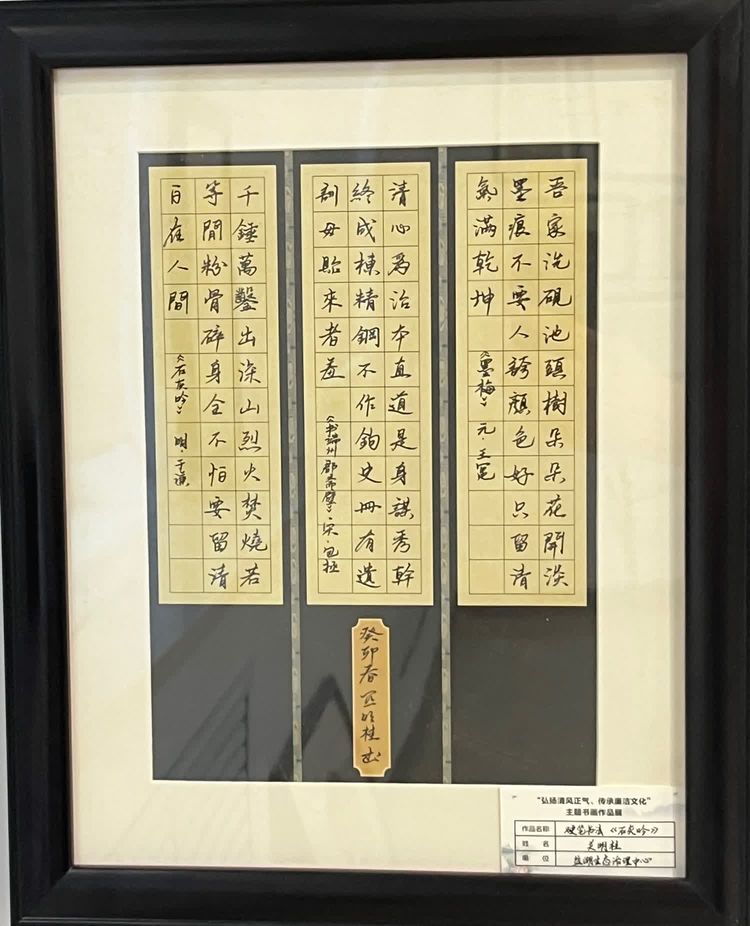 吾家洗硯池頭樹朵朵花開淡
墨痕不要人誇顏色好只留清
氣滿乾坤 《墨梅》 元·王冕
清心為治本直道是身謀秀幹
終成棟精鋼不作鉤史冊有遺
訓毋貽來者羞 《书端州郡斋壁》·宋·包拯
千錘萬鑿出深山烈火焚燒若
等閒粉骨碎身全不怕要留清
白在人間 《石灰吟》 明·于谦
癸卯春 吴明桂书
“弘扬清风正气、传承廉洁文化”
主题书画作品展
作品名称 硬笔书法《石灰吟》
姓名 吴明桂
单位 盐湖生态治理中心